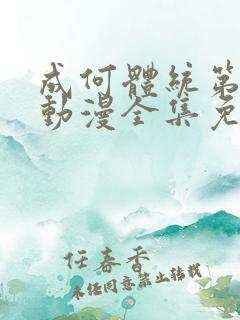 成何體統第
動漫全集免
任春香
未经同意禁止转载